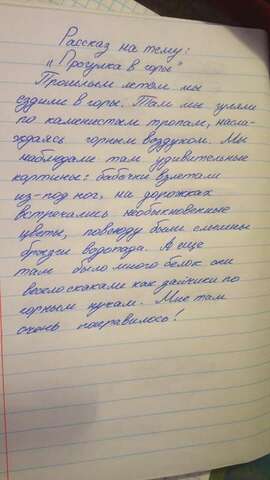 Рассказ на тему:
„Прогулка в горы"
Прошлым летом мы
ездили в горы. Там мы гуляли
по каменистым тропам, насла-
ждаясь горным воздухом. Мы
наблюдали там удивительные
картины: бабочки взлетали
из-под ног, на дорожках
встречались необыкновенные
цветы, повсюду были слышны
брызги водопада. А еще
там было много белок они
весело скакали как зайчики по
горным лужам. Мне там
очень понравилось!